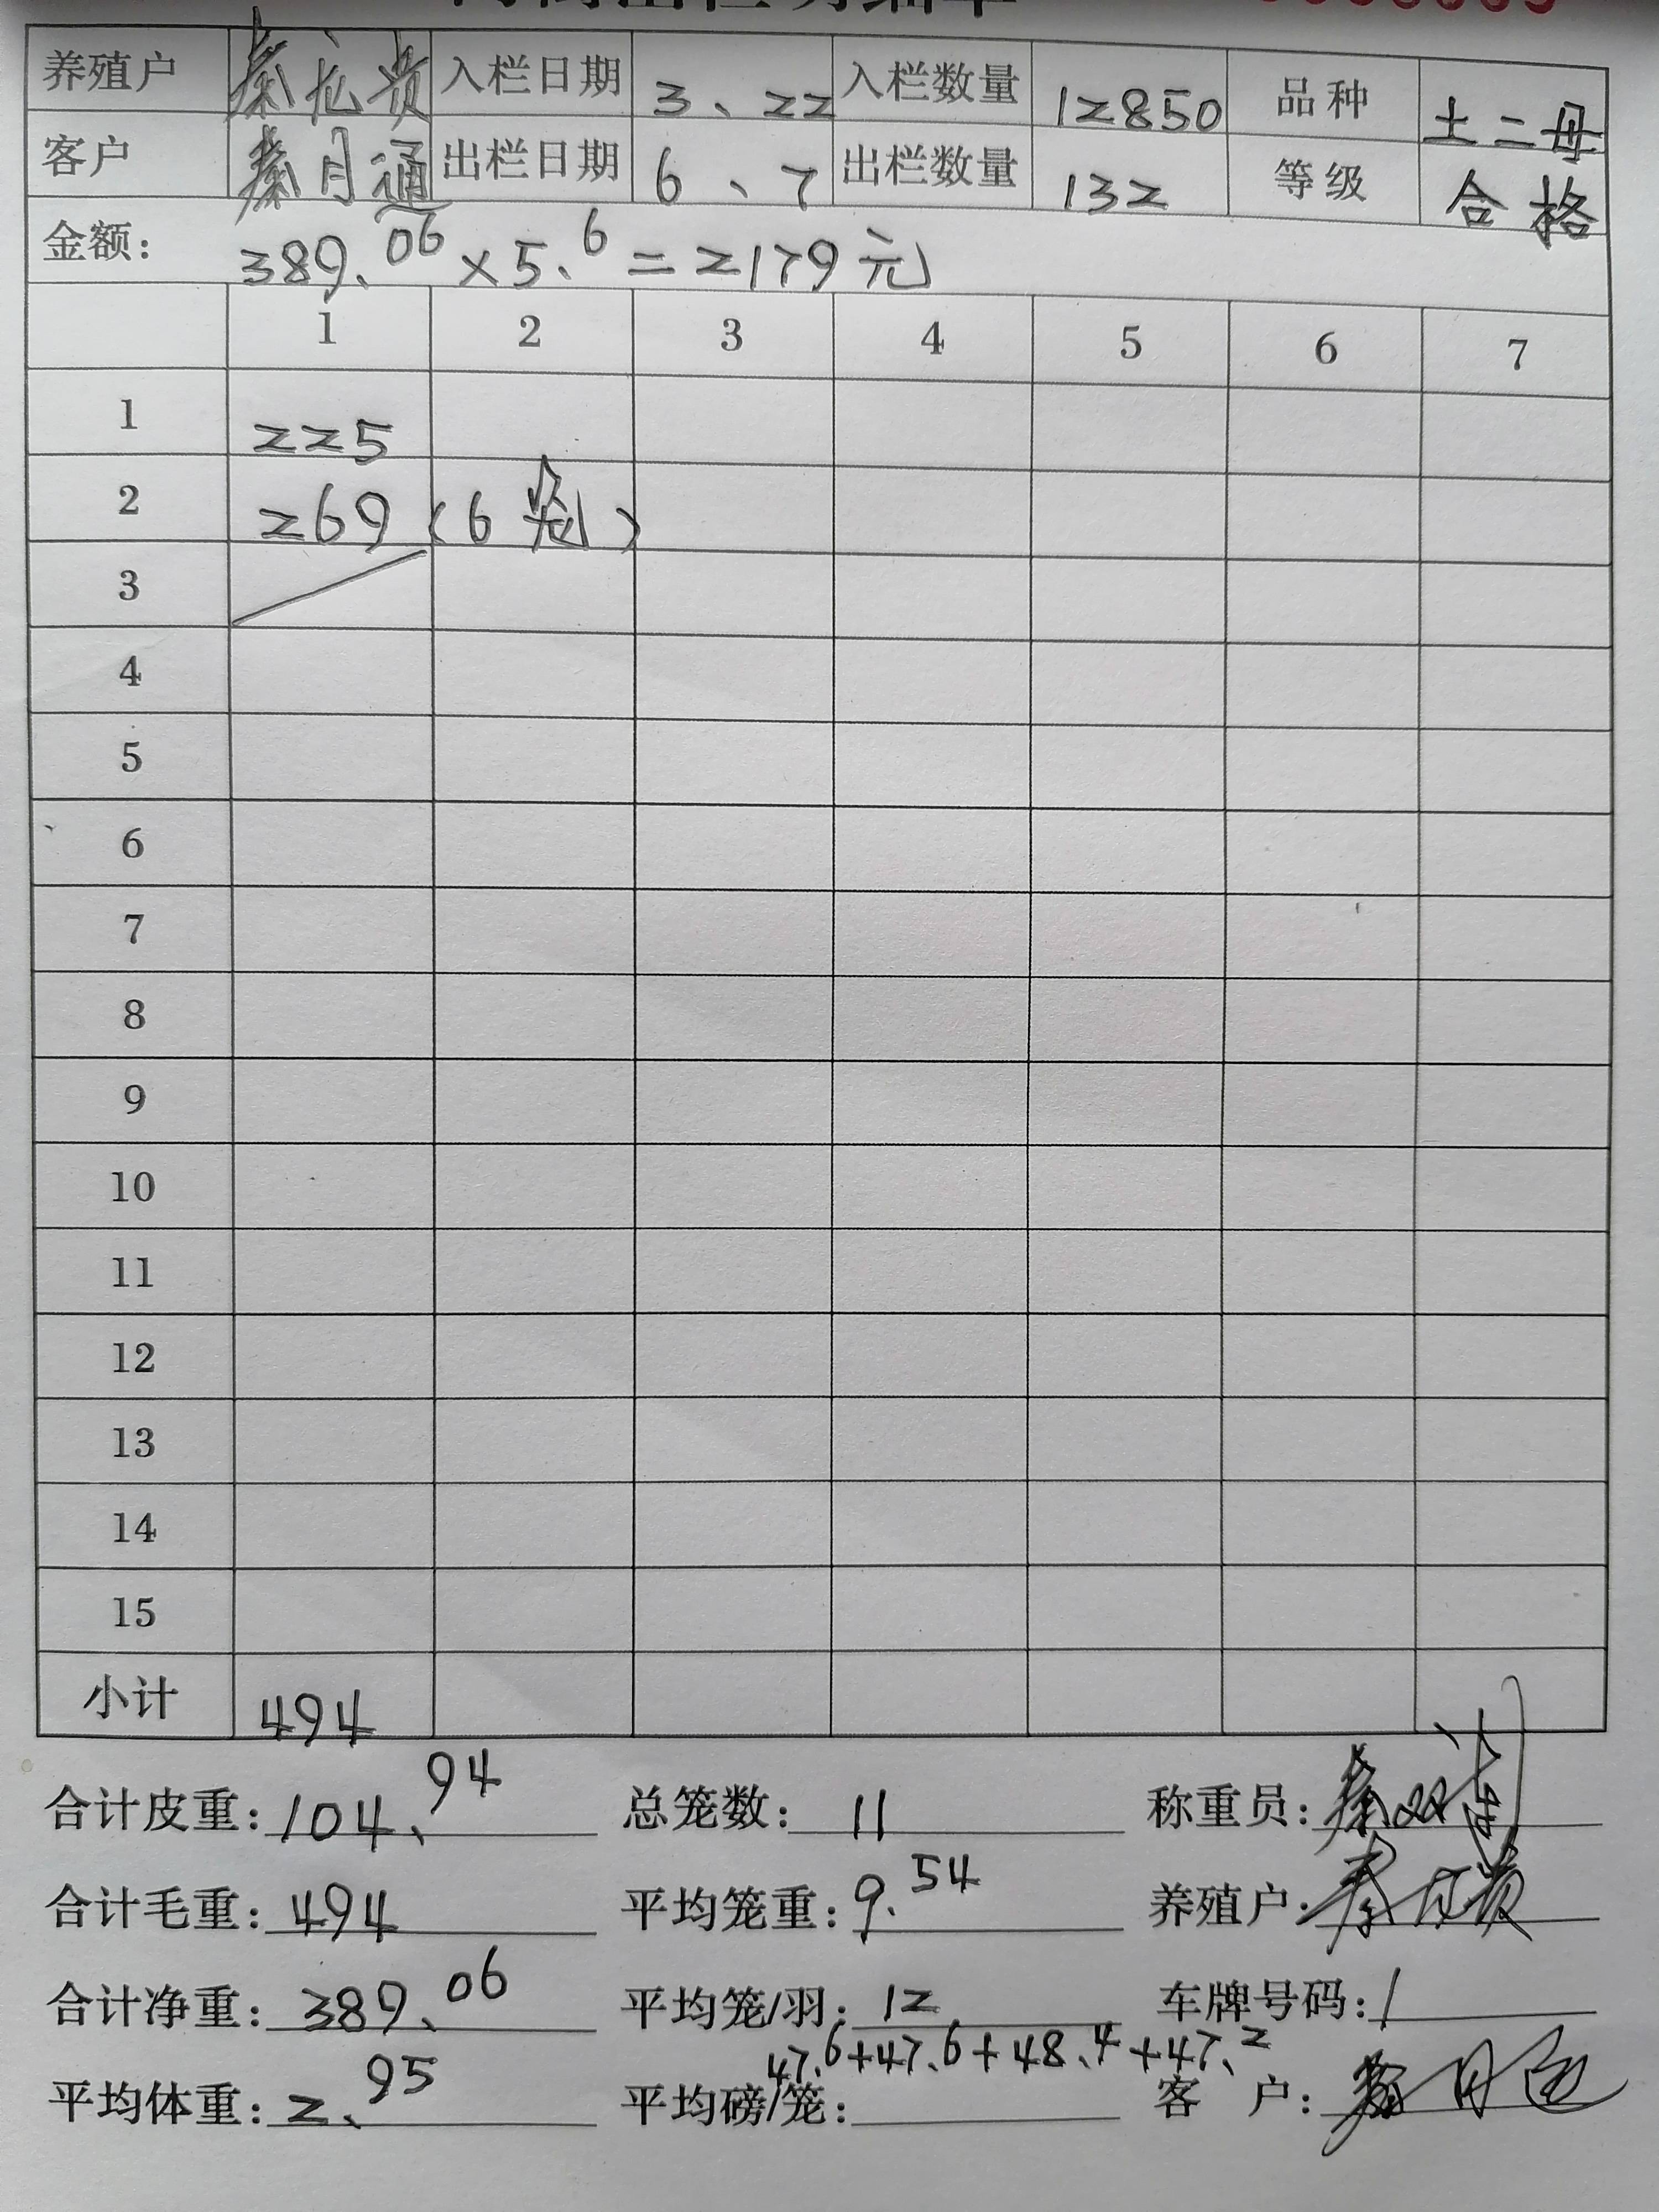 养殖户 秦龙贵 入栏日期 3、22 入栏数量 12850 品种 土二母
客户 秦月通 出栏日期 6、7 出栏数量 132 等级 合格
金额: 389.06×5.6=2179元
1 2 3 4 5 6 7
1 225
2 269 (6笼)
3
4
5
6
7
8
9
10
11
12
13
14
15
小计 494
合计皮重: 104.94 总笼数: 11 称重员:
合计毛重: 494 平均笼重: 9.54 养殖户:
合计净重: 389.06 平均笼/羽: 12 车牌号码: /
47.6+47.6+48.4+47.2
平均体重: 2.95 平均磅/笼: 客 户: